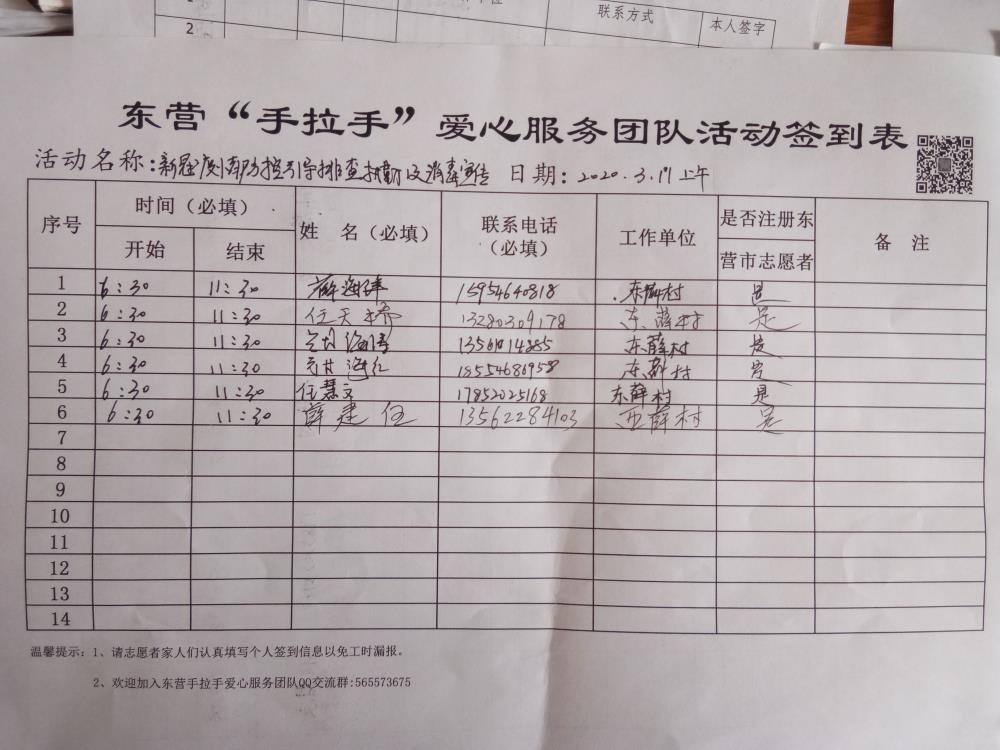 2
联系方式
本人签字
东营“手拉手”爱心服务团队活动签到表
活动名称:新冠疫情防控引导排查执勤及消毒宣传 日期:2020.3.17上午
序号 时间(必填) 姓 名(必填) 联系电话(必填) 工作单位 是否注册东营市志愿者 备 注
开始 结束
1 6:30 11:30 薛海 15954640818 东薛村 是
2 6:30 11:30 任天桥 13280309178 东薛村 是
3 6:30 11:30 海 东薛村 是
4 6:30 11:30 海红 18554686958 东薛村 是
5 6:30 11:30 任慧文 17852025168 东薛村 是
6 6:30 11:30 薛建伍 13562284103 西薛村 是
7
8
9
10
11
12
13
14
温馨提示:1、请志愿者家人们认真填写个人签到信息以免工时漏报。
2、欢迎加入东营手拉手爱心服务团队QQ交流群:565573675